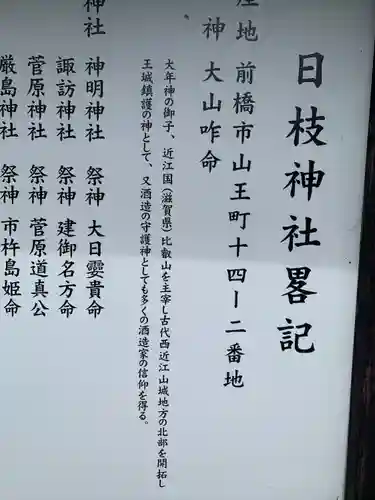 日枝神社畧記
座地 前橋市山王町十四ー二番地
神 大山咋命
大年神の御子、近江国(滋賀県)比叡山を主宰し古代西近江山城地方の北部を開拓し
王城鎮護の神として、又酒造の守護神としても多くの酒造家の信仰を得る。
神社 神明神社 祭神 大日孁貴命
諏訪神社 祭神 建御名方命
菅原神社 祭神 菅原道真公
厳島神社 祭神 市杵島姫命